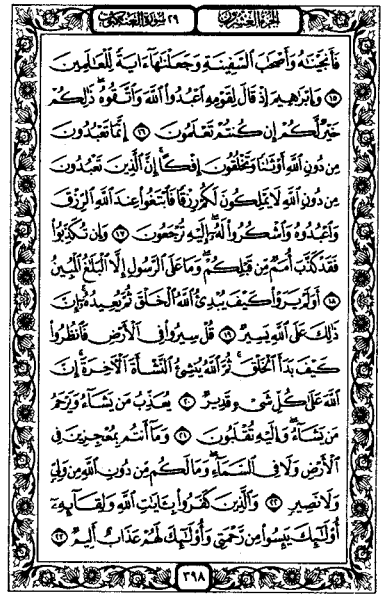 الجزء العشرون ٢٩ سورة العنكبوت
فَأَنجَيْنَٰهُ وَأَصْحَٰبَ ٱلسَّفِينَةِ وَجَعَلْنَٰهَآ ءَايَةً لِّلْعَٰلَمِينَ
١٥ وَإِبْرَٰهِيمَ إِذْ قَالَ لِقَوْمِهِ ٱعْبُدُوا۟ ٱللَّهَ وَٱتَّقُوهُ ۖ ذَٰلِكُمْ
خَيْرٌ لَّكُمْ إِن كُنتُمْ تَعْلَمُونَ ١٦ إِنَّمَا تَعْبُدُونَ
مِن دُونِ ٱللَّهِ أَوْثَٰنًا وَتَخْلُقُونَ إِفْكًا ۚ إِنَّ ٱلَّذِينَ تَعْبُدُونَ
مِن دُونِ ٱللَّهِ لَا يَمْلِكُونَ لَكُمْ رِزْقًا فَٱبْتَغُوا۟ عِندَ ٱللَّهِ ٱلرِّزْقَ
وَٱعْبُدُوهُ وَٱشْكُرُوا۟ لَهُۥٓ ۖ إِلَيْهِ تُرْجَعُونَ ١٧ وَإِن تُكَذِّبُوا۟
فَقَدْ كَذَّبَ أُمَمٌ مِّن قَبْلِكُمْ ۖ وَمَا عَلَى ٱلرَّسُولِ إِلَّا ٱلْبَلَٰغُ ٱلْمُبِينُ
١٨ أَوَلَمْ يَرَوْا۟ كَيْفَ يُبْدِئُ ٱللَّهُ ٱلْخَلْقَ ثُمَّ يُعِيدُهُۥٓ ۚ إِنَّ
ذَٰلِكَ عَلَى ٱللَّهِ يَسِيرٌ ١٩ قُلْ سِيرُوا۟ فِى ٱلْأَرْضِ فَٱنظُرُوا۟
كَيْفَ بَدَأَ ٱلْخَلْقَ ۚ ثُمَّ ٱللَّهُ يُنشِئُ ٱلنَّشْأَةَ ٱلْءَاخِرَةَ ۚ إِنَّ
ٱللَّهَ عَلَىٰ كُلِّ شَىْءٍ قَدِيرٌ ٢٠ يُعَذِّبُ مَن يَشَآءُ وَيَرْحَمُ
مَن يَشَآءُ ۖ وَإِلَيْهِ تُقْلَبُونَ ٢١ وَمَآ أَنتُم بِمُعْجِزِينَ فِى
ٱلْأَرْضِ وَلَا فِى ٱلسَّمَآءِ ۖ وَمَا لَكُم مِّن دُونِ ٱللَّهِ مِن وَلِىٍّ
وَلَا نَصِيرٍ ٢٢ وَٱلَّذِينَ كَفَرُوا۟ بِـَٔايَٰتِ ٱللَّهِ وَلِقَآئِهِۦٓ
أُو۟لَٰٓئِكَ يَئِسُوا۟ مِن رَّحْمَتِى وَأُو۟لَٰٓئِكَ لَهُمْ عَذَابٌ أَلِيمٌ ٢٣
٣٩٨